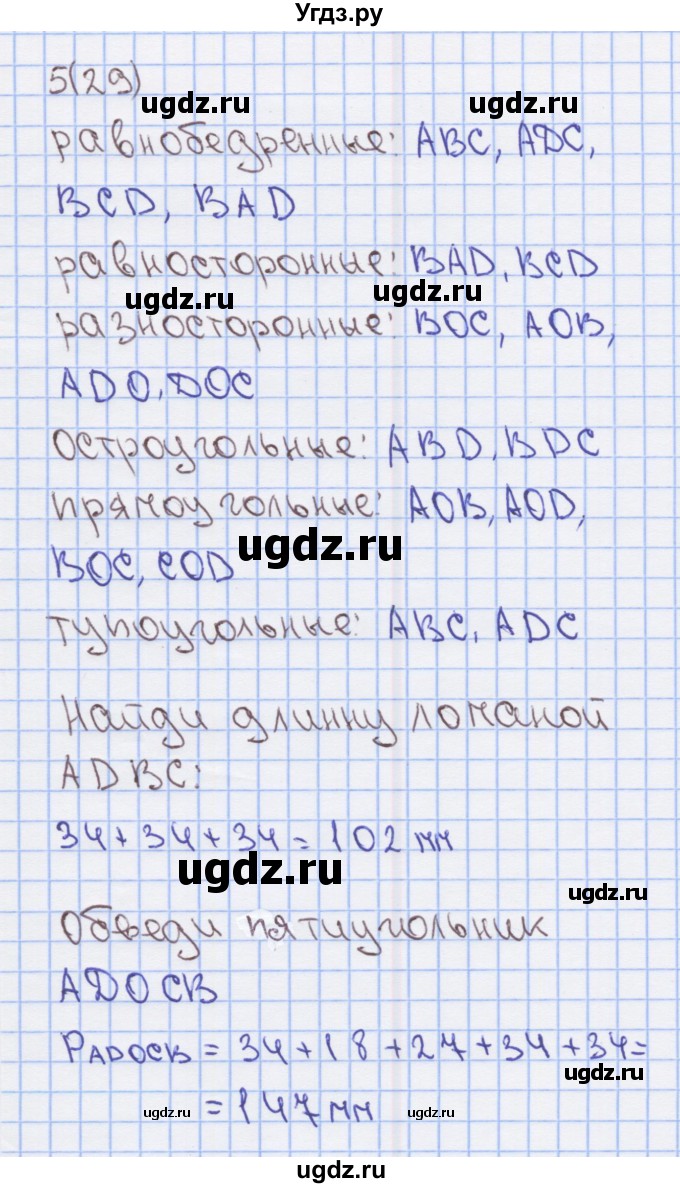 Угдз.ру
5(29)
ugdz.ru ugdz.ru
равнобедренные: ABC, ADC,
BCD, BAD
равносторонные: BAD, BCD
ugdz.ru ugdz.ru
разносторонные: BOC, AOB,
ADO, DOC
остроугольные: ABD, BDC
прямоугольные: AOB, AOD,
ugdz.ru
BOC, COD
тупоугольные: ABC, ADC
Найди длинну ломаной
ADBC:
34+34+34=102 мм
ugdz.ru
ugdz.ru
Обведи пятиугольник
ADOCB
PADOCB = 34+18+27+34+34=
ugdz.ru
ugdz.ru = 147 мм ugdz.ru
ugdz.ru